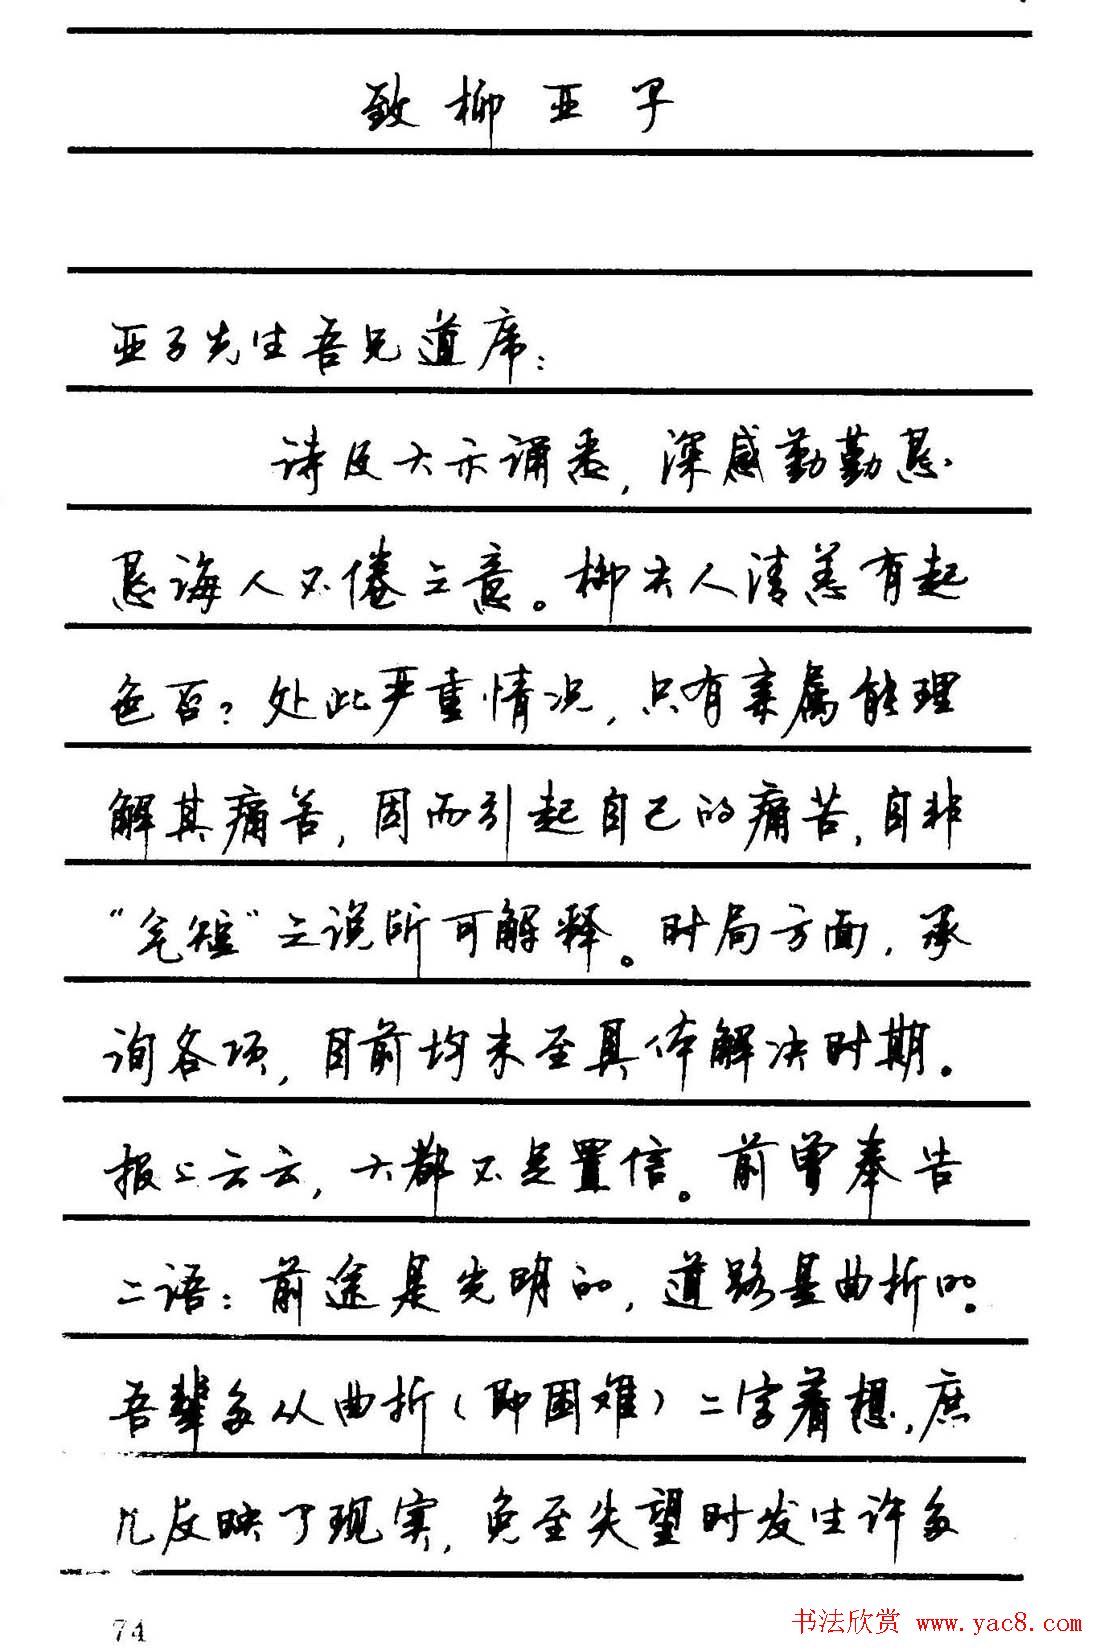 致柳亚子
亚子先生吾兄道席：
诗及大示诵悉，深感勤勤恳
恳诲人不倦之意。柳夫人清恙有起
色否？处此严重情况，只有亲属能理
解其痛苦，因而引起自己的痛苦，自非
“气短”之说所可解释。时局方面，承
询各项，目前均未至具体解决时期。
报上云云，大都不足置信。前曾奉告
二语：前途是光明的，道路是曲折的。
吾辈多从曲折（即困难）二字着想，庶
几反映了现实，免至失望时发生许多
74
书法欣赏 www.yac8.com